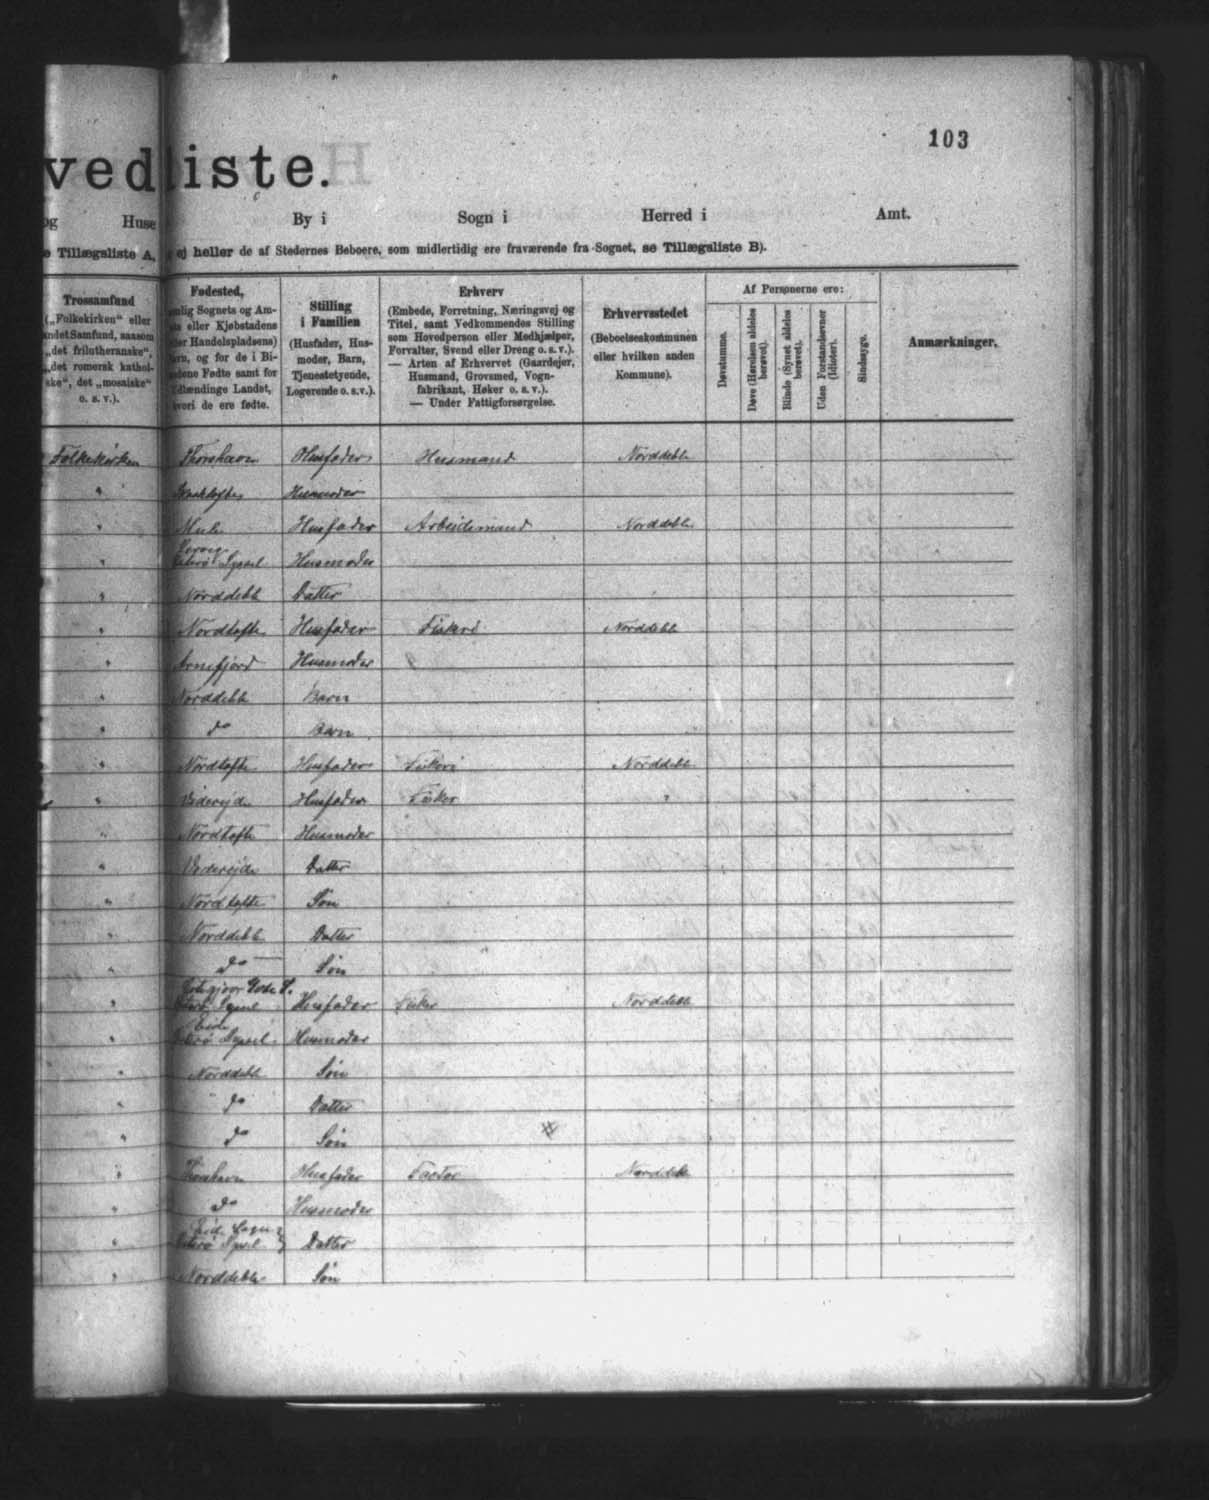 103
vedliste.
og Huse By i Sogn i Herred i Amt.
e Tillægsliste A, ej heller de af Stedernes Beboere, som midlertidig ere fraværende fra Sognet, se Tillægsliste B).
Trossamfund
(„Folkekirken“ eller
andet Samfund, saasom
„det frilutheranske“,
„det romersk kathol-
ske“, det „mosaiske“
o. s. v.).
Fødested,
nemlig Sognets og Am-
eller Kjøbstadens
Handelspladsens)
og for de i Bi-
Fødte samt for
Udlændinge Landet,
hvori de ere fødte.
Stilling
i Familien
(Husfader, Hus-
moder, Barn,
Tjenestetyende,
Logerende o. s. v.).
Erhverv
(Embede, Forretning, Næringsvej og
Titel, samt Vedkommendes Stilling
som Hovedperson eller Medhjælper,
Forvalter, Svend eller Dreng o. s. v.).
— Arten af Erhvervet (Gaardejer,
Husmand, Grovsmed, Vogn-
fabrikant, Høker o. s. v.).
— Under Fattigforsørgelse.
Erhvervsstedet
(Beboelseskommunen
eller hvilken anden
Kommune).
Af Personerne ere:
Døvstumme.
Døve (Hørelsen aldeles
berøvet).
Blinde (Synet aldeles
berøvet).
Uden Forstandsevner
(Idioter).
Sindssyge.
Anmærkninger.
Folkekirken Thorshavn Husfader Husmand Norddeble
" Husmoder
" Mule Husfader Arbeidsmand Norddeble
" Syssel Husmoder
" Norddeble Datter
" Nordtofte Husfader Fiskeri Norddeble
" Arnefjord Husmoder
" Norddeble Barn
" do Barn
" Nordtofte Husfader Fiskeri Norddeble
" Viderejde Husfader Fisker "
" Nordtofte Husmoder
" Viderejde Datter
" Nordtofte Søn
" Norddeble Datter
" do Søn
" Husfader Fisker Norddeble
" Eide
Syssel Husmoder
" Norddeble Søn
" do Datter
" do Søn
" Thorshavn Husfader Factor Norddeble
" do Husmoder
" Sogn
Sysel Datter
" Norddeble Søn